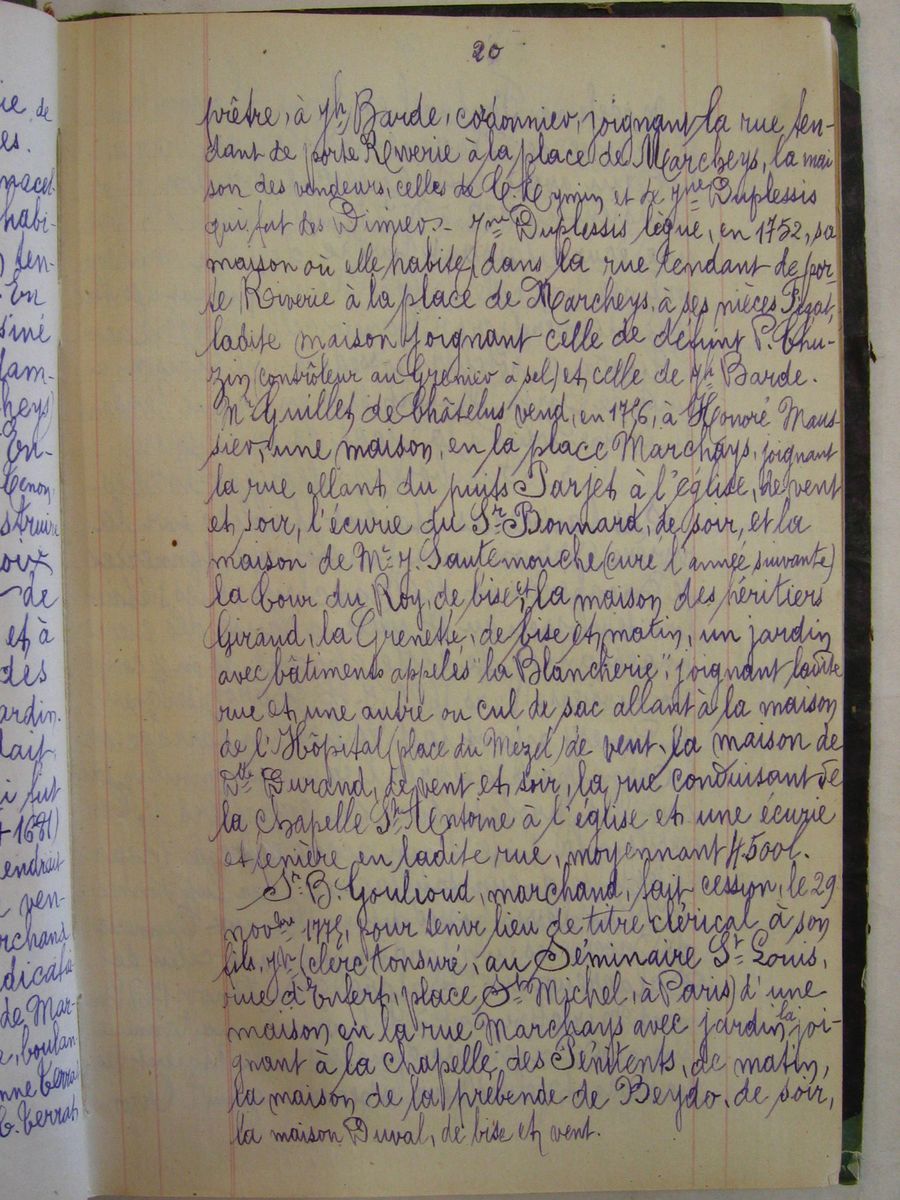 20
prêtre, à Jh Barde, cordonnier, joignant la rue ten-
dant de porte Riverie à la place de Marcheys, la mai
son des vendeurs, celles de C. Reymin et de Jne Duplessis
qui fut des Dimier.- Jne Duplessis lègue, en 1752, sa
maison où elle habite, dans la rue tendant de por-
te Riverie à la place de Marcheys, à ses nièces Pezat,
ladite maison joignant celle de défunt P. Chu-
zin (contrôleur au Grenier à sel) et celle de Jh Barde.
Mr Guillet de Châtelus vend, en 1776, à Honoré Maus-
sier, une maison, en la place Marchays, joignant
la rue allant du puits Parjet à l'église, de vent
et soir, l'écurie du Sr Bonnard, de soir, et la
maison de Mre J. Gautemouche (curé l'année suivante)
la Cour du Roy, de bise et la maison des héritiers
Giraud, la Grenette, de bise et matin, un jardin
avec bâtiments appelés "la Blancherie", joignant ladite
rue et une autre ou cul de sac allant à la maison
de l'Hôpital (place du Mézel) de vent, la maison de
Dlle Durand, de vent et soir, la rue conduisant de
la chapelle St Antoine à l'église et une écurie
et fenière en ladite rue, moyennant 4500l.
Sr B. Goulioud, marchand, fait cession, le 29
novbre 1778, pour tenir lieu de titre clérical à son
fils, Jh (clerc tonsuré, au Séminaire St Louis,
rue d'Enfert, place St Michel, à Paris) d'une
maison en la rue Marchays avec jardin, la joi-
gnant à la chapelle des Pénitents, de matin,
la maison de la prébende de Beydo, de soir,
la maison Duval, de bise et vent.